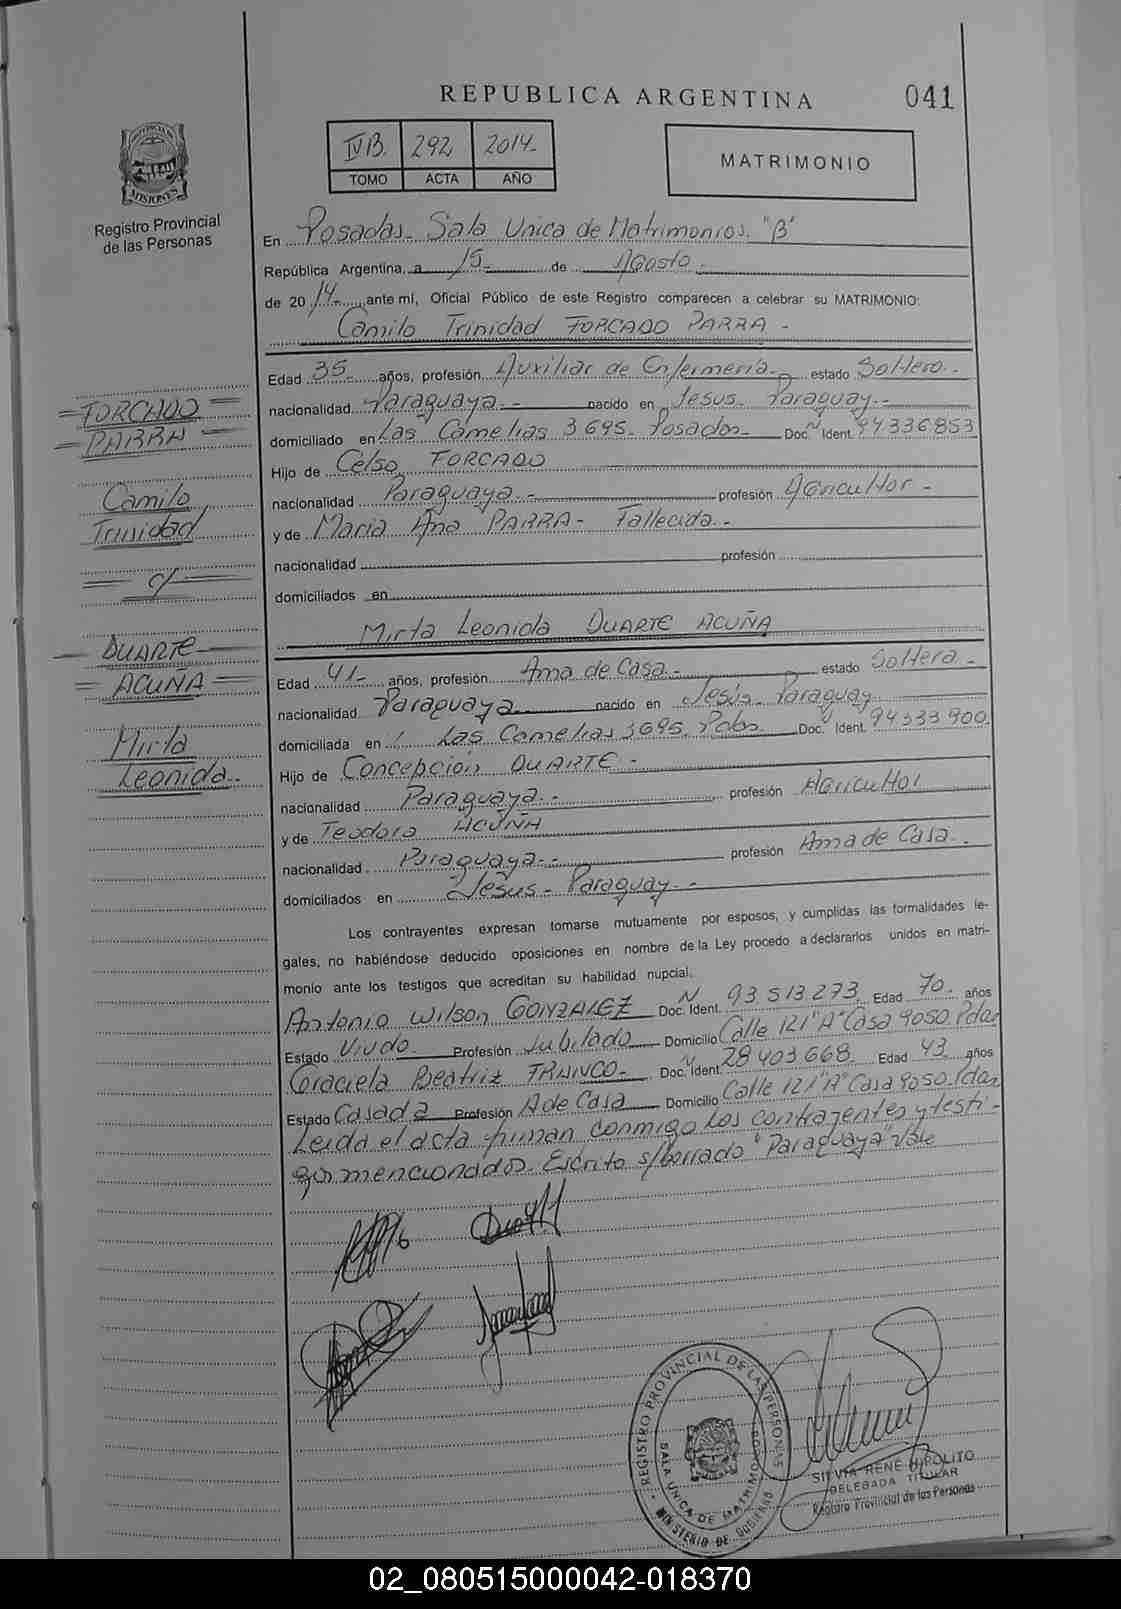 REPUBLICA ARGENTINA
041
PROVINCIA DE
MISIONES
Registro Provincial
de las Personas
IVB. 292 2014-
TOMO ACTA AÑO
MATRIMONIO
En Posadas- Sala Unica de Matrimonios. "B"
República Argentina, a 15- de Agosto-
de 2014-, ante mí, Oficial Público de este Registro comparecen a celebrar su MATRIMONIO:
Camilo Trinidad FORCADO PARRA -
Edad 35- años, profesión Auxiliar de Enfermería- estado Soltero.-
nacionalidad Paraguaya.- nacido en Jesus- Paraguay.-
domiciliado en Las Camelias 3695- Posadas- Doc. Ident. Nº 94336853
Hijo de Celso FORCADO
nacionalidad Paraguaya.- profesión Agricultor-
y de Maria Ana PARRA- Fallecida.-
nacionalidad profesión
domiciliados en
Mirta Leonida DUARTE ACUÑA
Edad 41- años, profesión Ama de Casa.- estado Soltera-
nacionalidad Paraguaya nacido en Jesús- Paraguay
domiciliada en Las Camelias 3695. Pdas. Doc. Ident. Nº 94333900.
Hijo de Concepción DUARTE-
nacionalidad Paraguaya.- profesión Agricultor
y de Teodora ACUÑA
nacionalidad Paraguaya.- profesión Ama de Casa.
domiciliados en Jesus- Paraguay.-
Los contrayentes expresan tomarse mutuamente por esposos, y cumplidas las formalidades le-
gales, no habiéndose deducido oposiciones en nombre de la Ley procedo a declararlos unidos en matri-
monio ante los testigos que acreditan su habilidad nupcial.
Antonio Wilson GONZALEZ Doc. Ident. Nº 93.513.273. Edad 70- años
Estado Viudo. Profesión Jubilado Domicilio Calle 121 "A" Casa 9050. Pdas
Graciela Beatriz Doc. Ident. Nº 28403.668. Edad 43. años
Estado Casada Profesión A de Casa Domicilio Calle 121 "A" Casa 9050. Pdas
Leida el acta firman conmigo los contrayentes y testi-
gos mencionados. Escrito s/borrado "Paraguaya" Vale
=FORCADO=
=PARRA=
Camilo
Trinidad
= c/ =
-DUARTE-
=ACUÑA=
Mirta
Leonida.
REGISTRO PROVINCIAL DE LAS PERSONAS
SALA UNICA DE MATRIMONIOS
MINISTERIO DE GOBIERNO
SILVIA RENE HIPOLITO
DELEGADA TITULAR
Registro Provincial de las Personas
02_080515000042-018370